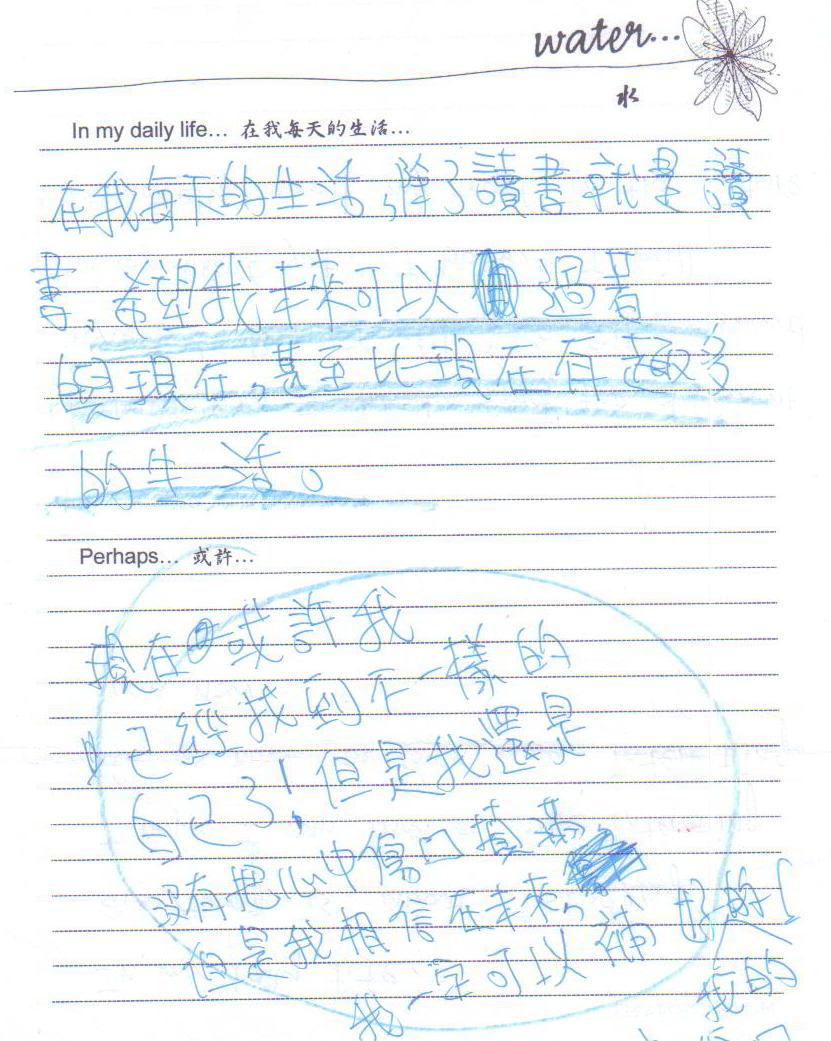 water...
水
In my daily life... 在我每天的生活...
在我每天的生活,除了讀書就是讀
書,希望我未來可以過著
與現在,甚至比現在有趣多
的生活。
Perhaps... 或許...
現在或許我
已經找到不一樣的
自己了!但是我還是
沒有把心中傷口填滿
但是我相信在未來,
我一定可以補好的!
我的